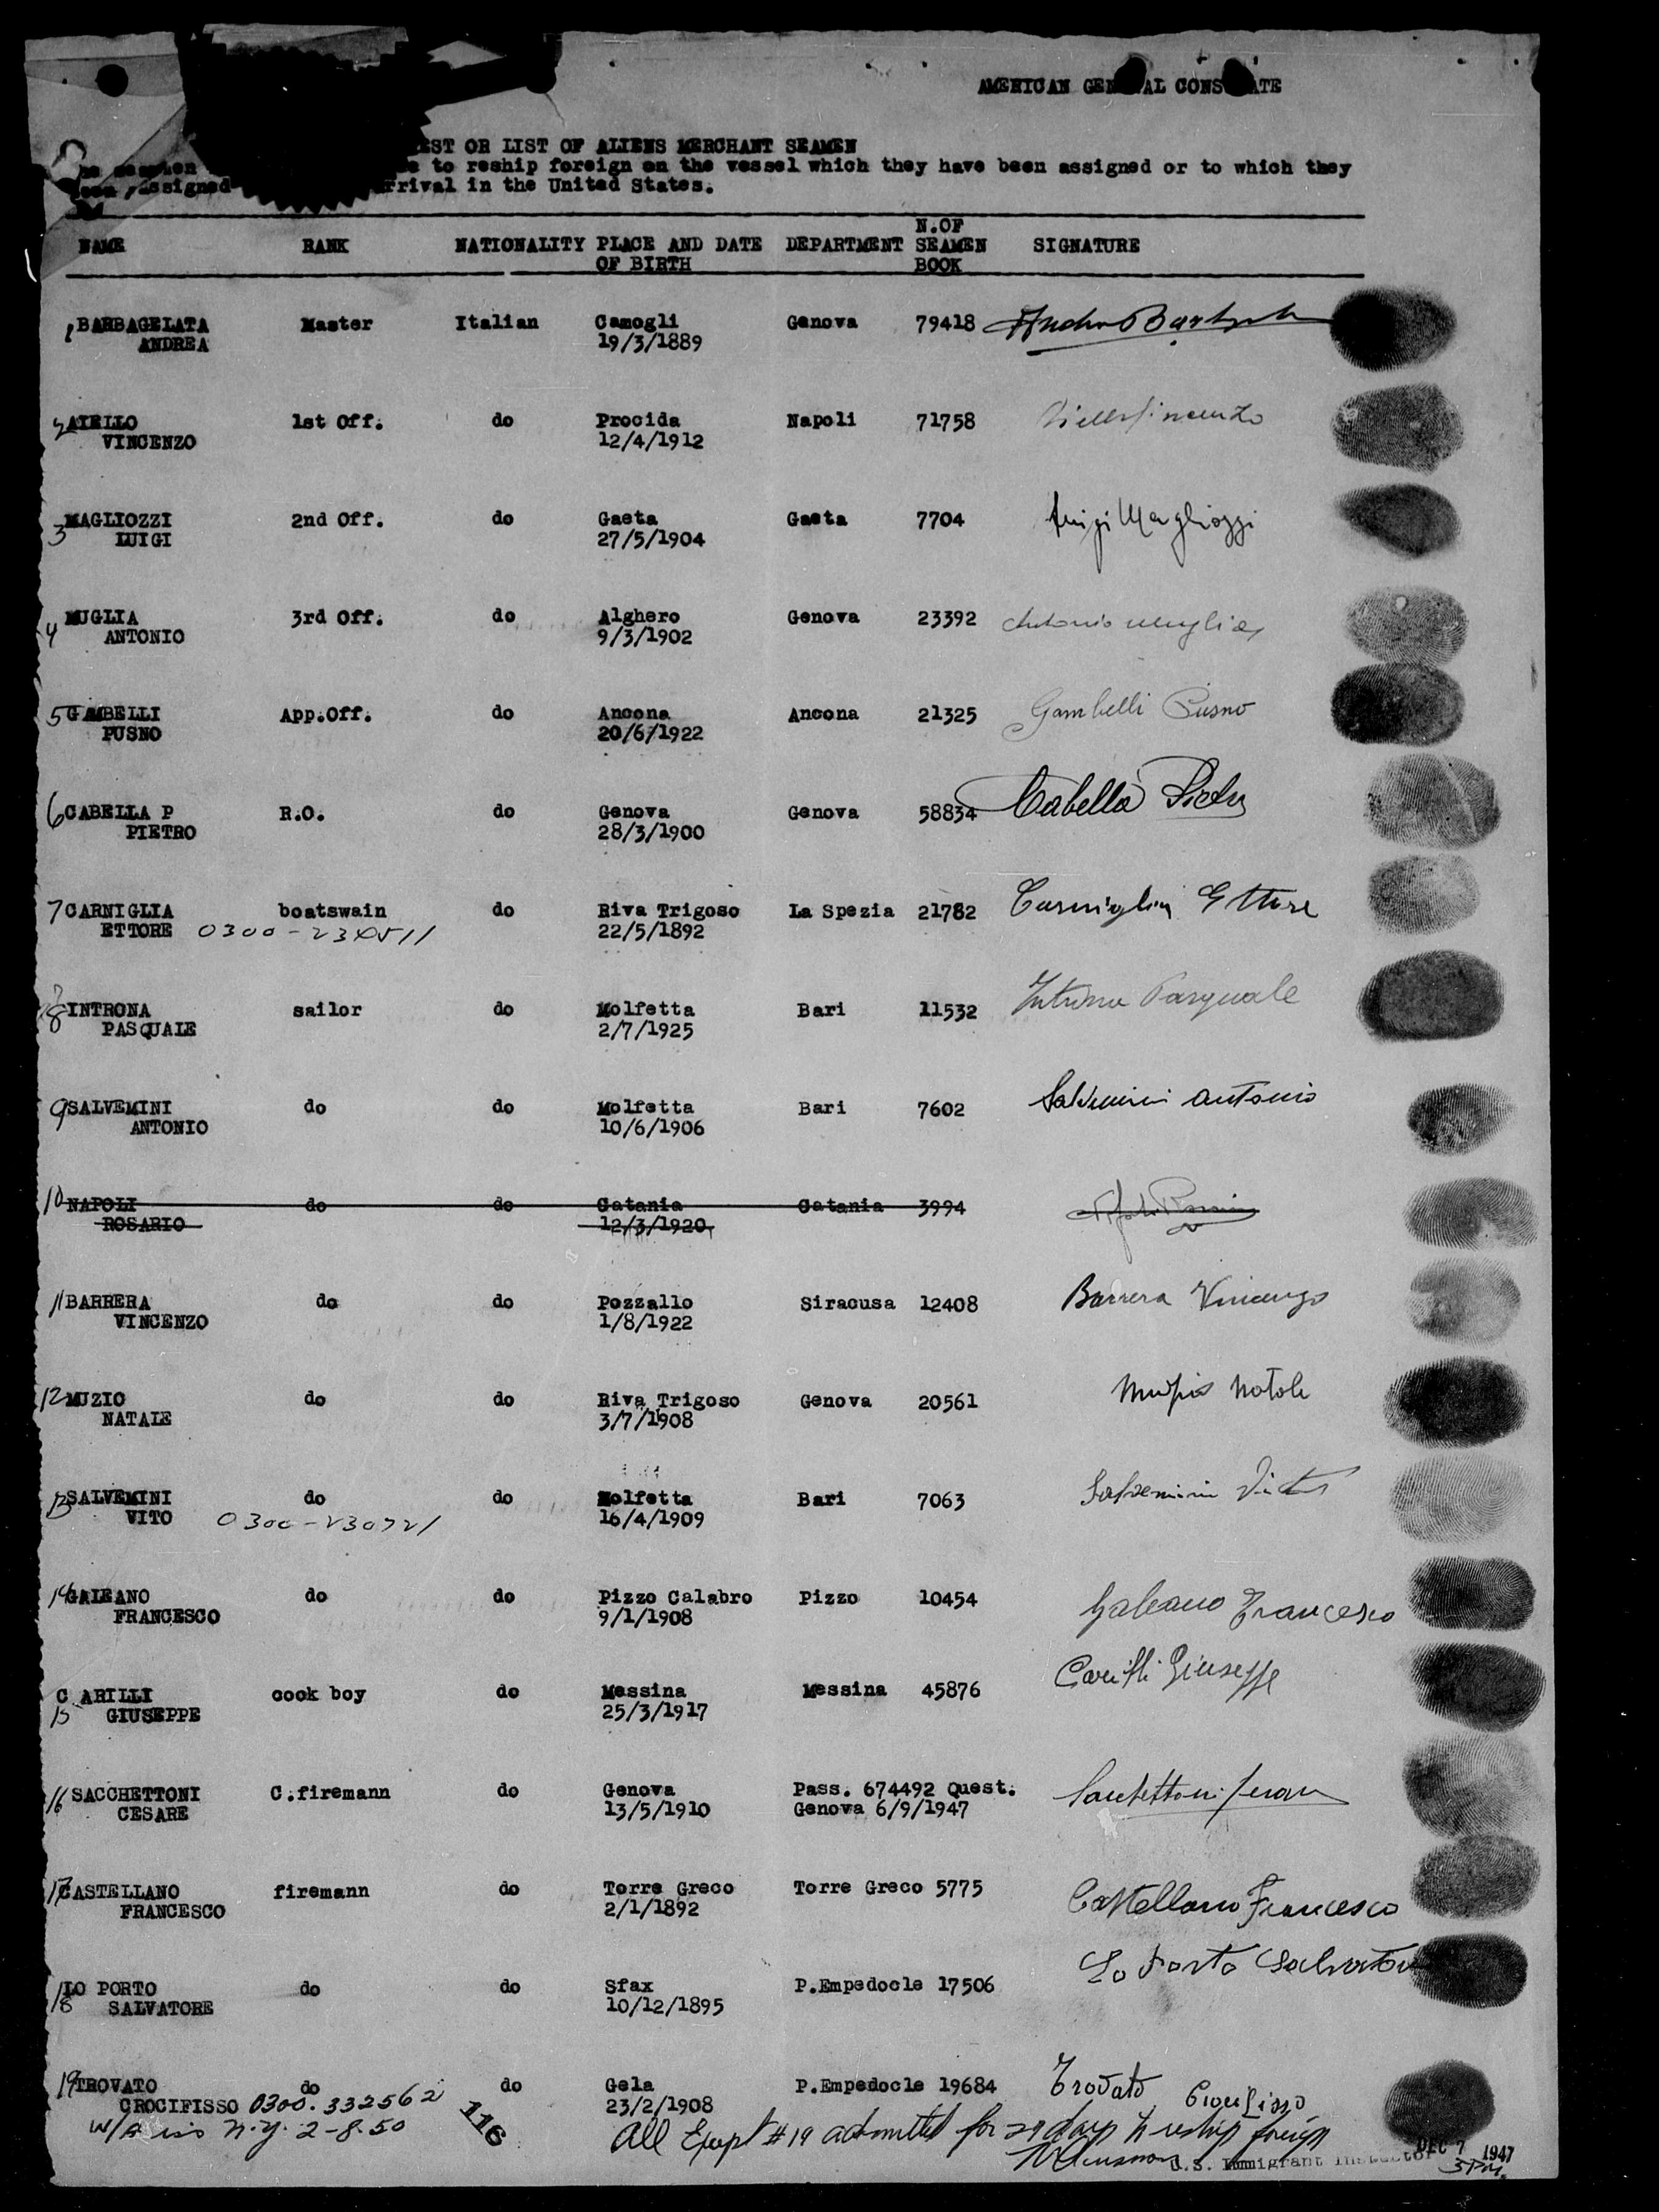 AMERICAN GENERAL CONSULATE
EST OR LIST OF ALIENS MERCHANT SEAMEN
to reship foreign on the vessel which they have been assigned or to which they
assigned rrival in the United States.
NAME RANK NATIONALITY PLACE AND DATE OF BIRTH DEPARTMENT N.OF SEAMEN BOOK SIGNATURE
1 BARBAGELATA Master Italian Camogli Genova 79418
ANDREA 19/3/1889
2 AIELLO 1st Off. do Procida Napoli 71758 Aiello Vincenzo
VINCENZO 12/4/1912
3 MAGLIOZZI 2nd Off. do Gaeta Gaeta 7704 Luigi Magliozzi
LUIGI 27/5/1904
4 MUGLIA 3rd Off. do Alghero Genova 23392 Antonio Muglia
ANTONIO 9/3/1902
5 GAMBELLI App.Off. do Ancona Ancona 21325 Gambelli Pusno
PUSNO 20/6/1922
6 CABELLA P R.O. do Genova Genova 58834 Cabella Pietro
PIETRO 28/3/1900
7 CARNIGLIA boatswain do Riva Trigoso La Spezia 21782 Carniglia Ettore
ETTORE 22/5/1892
8 INTRONA sailor do Molfetta Bari 11532 Introna Pasquale
PASQUALE 2/7/1925
9 SALVEMINI do do Molfetta Bari 7602 Salvemini Antonio
ANTONIO 10/6/1906
10 NAPOLI do do Catania Catania 3994
ROSARIO 12/3/1920
11 BARRERA do do Pozzallo Siracusa 12408 Barrera Vincenzo
VINCENZO 1/8/1922
12 MUZIO do do Riva Trigoso Genova 20561 Muzio Natale
NATALE 3/7/1908
13 SALVEMINI do do Molfetta Bari 7063 Salvemini Vito
VITO 0300-230721 16/4/1909
14 GALEANO do do Pizzo Calabro Pizzo 10454 Galeano Francesco
FRANCESCO 9/1/1908
C ARILLI cook boy do Messina Messina 45876 Carilli Giuseppe
15 GIUSEPPE 25/3/1917
16 SACCHETTONI C.firemann do Genova Pass. 674492 Quest. Sacchettoni Cesare
CESARE 13/5/1910 Genova 6/9/1947
17 CASTELLANO firemann do Torre Greco Torre Greco 5775 Castellano Francesco
FRANCESCO 2/1/1892
18 LO PORTO do do Sfax P.Empedocle 17506 Lo Porto Salvatore
SALVATORE 10/12/1895
19 TROVATO do do Gela P.Empedocle 19684 Trovato Crocifisso
CROCIFISSO 0300.332562 23/2/1908
N.Y. 2-8-50 116 All Except #19 admitted for 29 days to reship foreign
U.S. Immigrant Inspector DEC 7 1947
3 P.M.